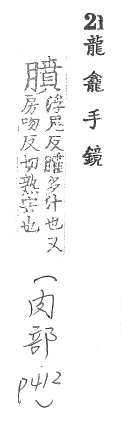 21 龍龕手鏡
膹 浮鬼反臛多汁也又
房吻反切熟宍也
(肉部 p412)